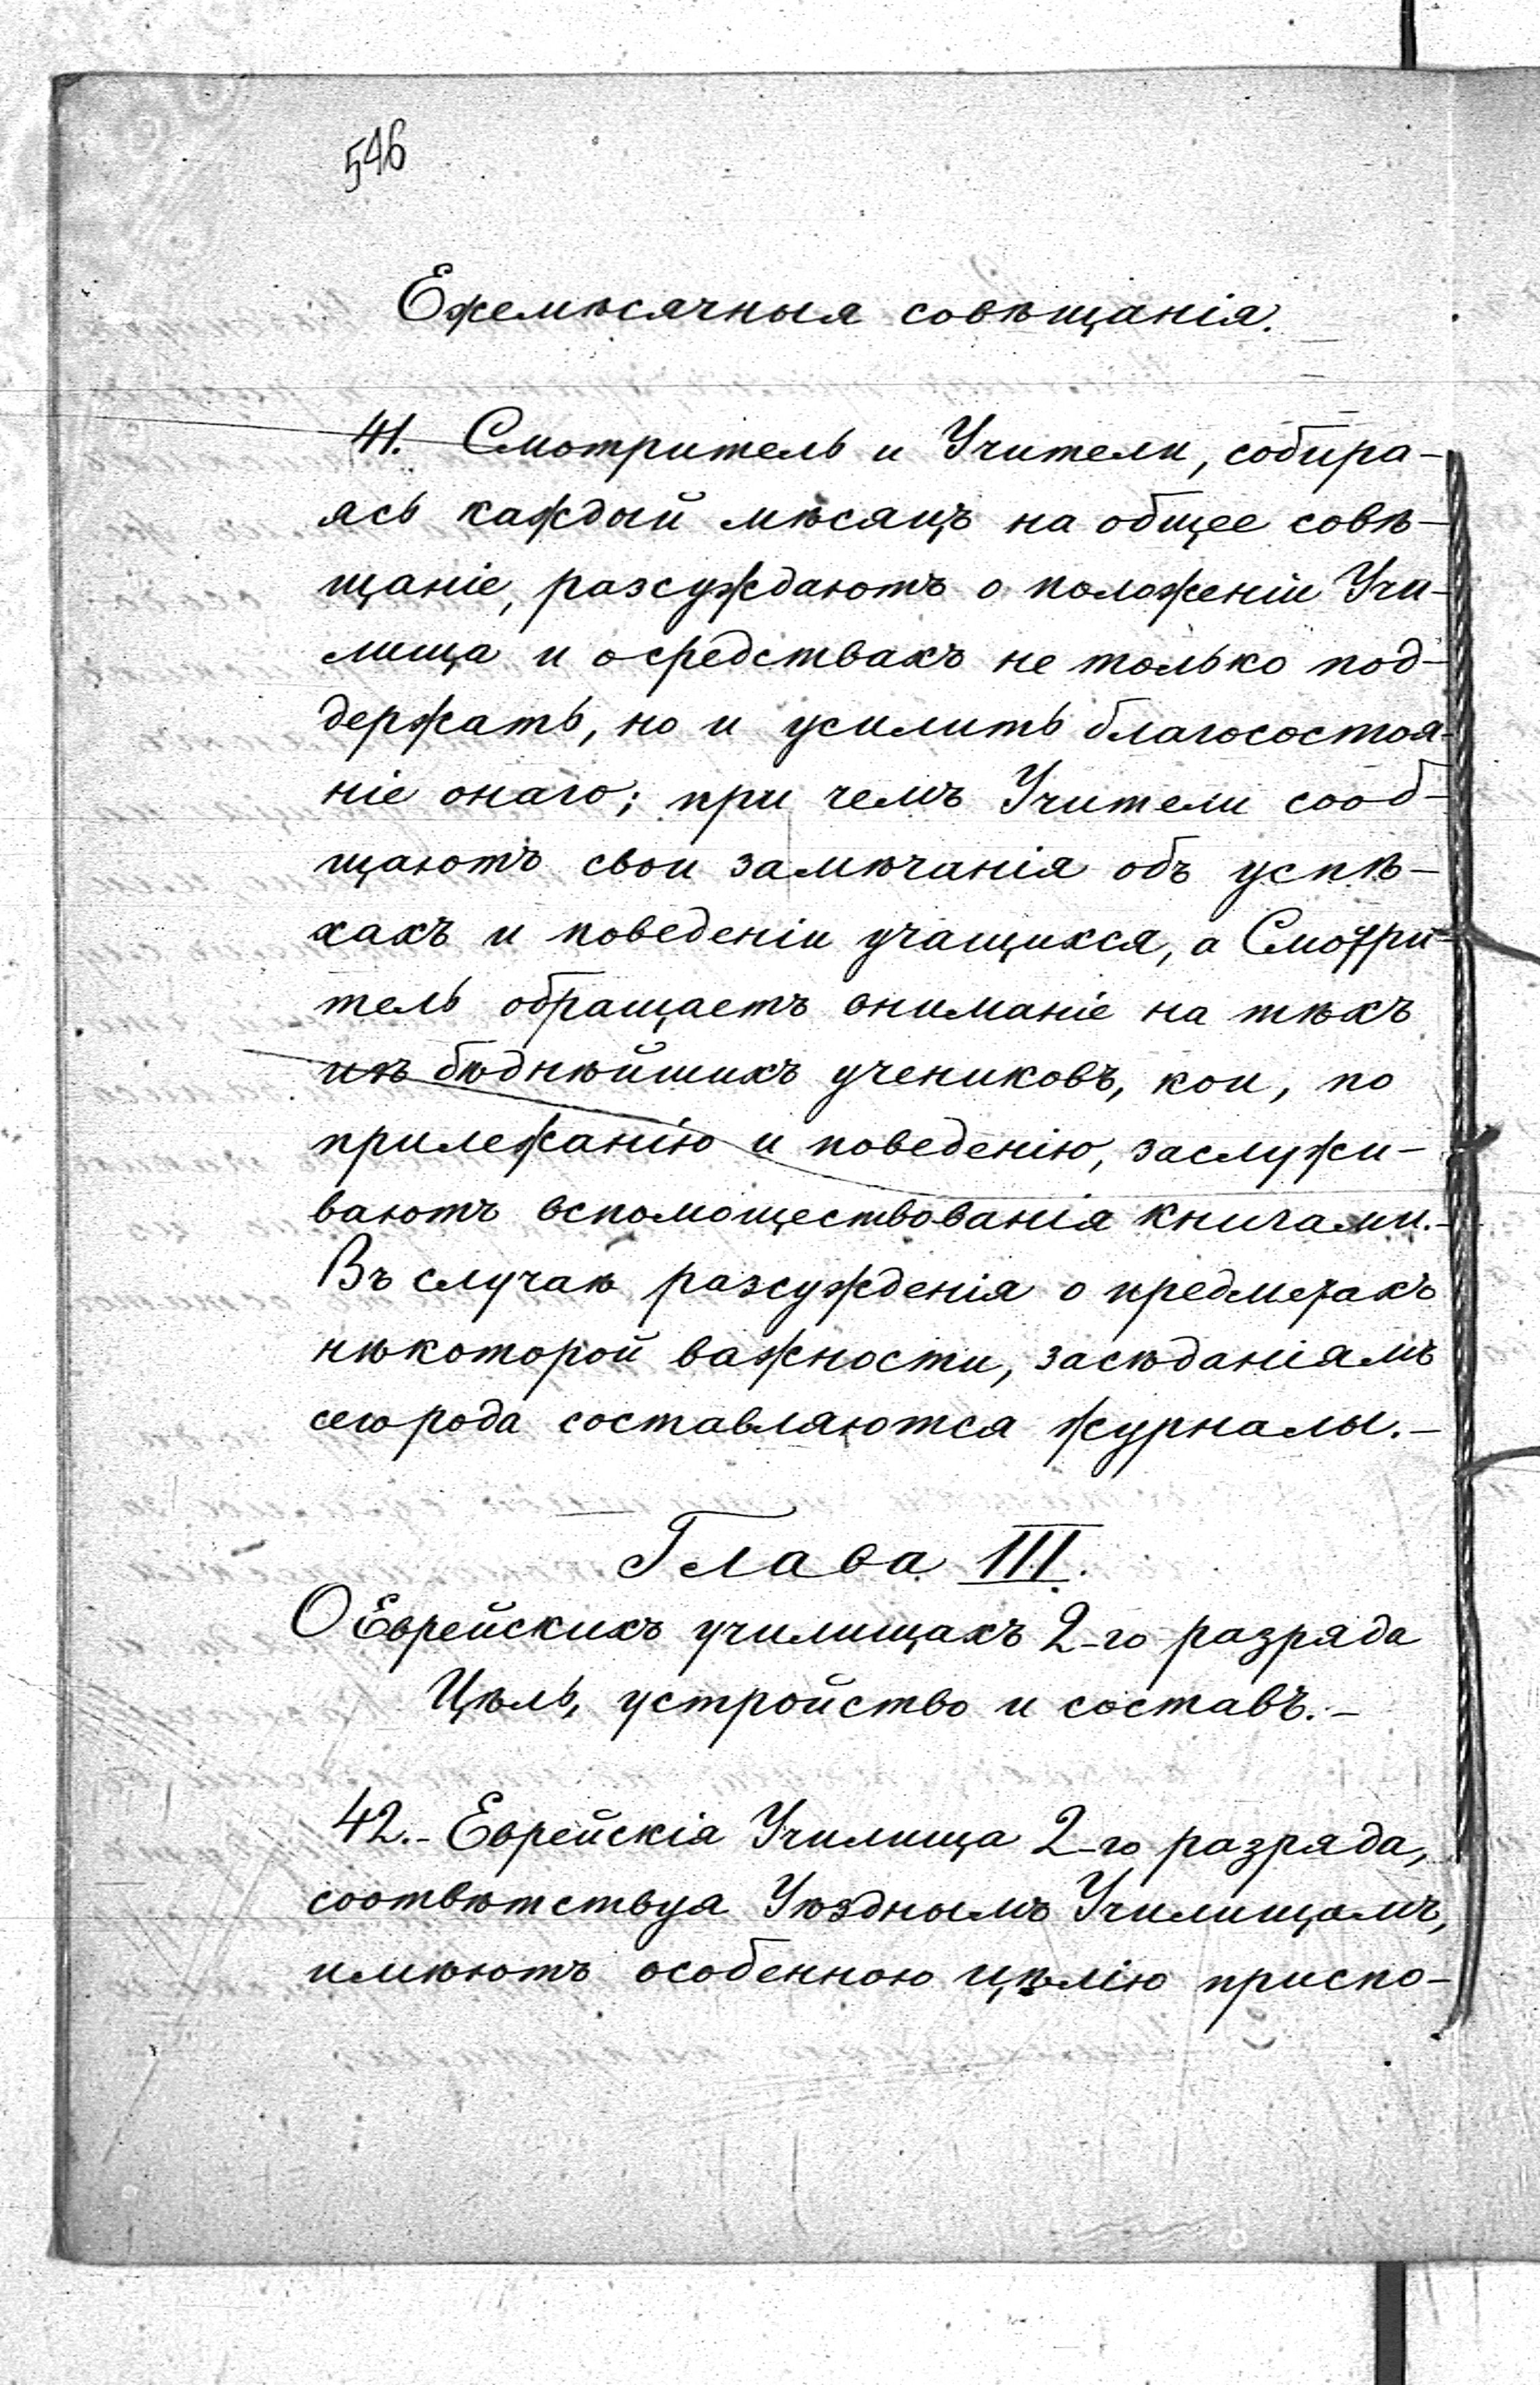 546
Ежемѣсячныя совѣщанія.
41. Смотритель и Учители, собира-
ясь каждый мѣсяцъ на общее совѣ-
щаніе, разсуждаютъ о положеніи Учи-
лища и о средствахъ не только под-
держать, но и усилить благосостоя-
ніе онаго; при чемъ Учители сооб-
щаютъ свои замѣчанія объ успѣ-
хахъ и поведеніи учащихся, а Смотри-
тель обращаетъ вниманіе на тѣхъ
изъ бѣднѣйшихъ учениковъ, кои, по
прилежанію и поведенію, заслужи-
ваютъ вспомоществованія книгами.-
Въ случаѣ разсужденія о предметахъ
нѣкоторой важности, засѣданіямъ
сего рода составляются журналы.-
Глава III.
О Еврейскихъ училищахъ 2-го разряда
Цѣль, устройство и составъ.-
42.- Еврейскія Училища 2-го разряда,
соотвѣтствуя Уѣзднымъ Училищамъ,
имѣютъ особенною цѣлію приспо-